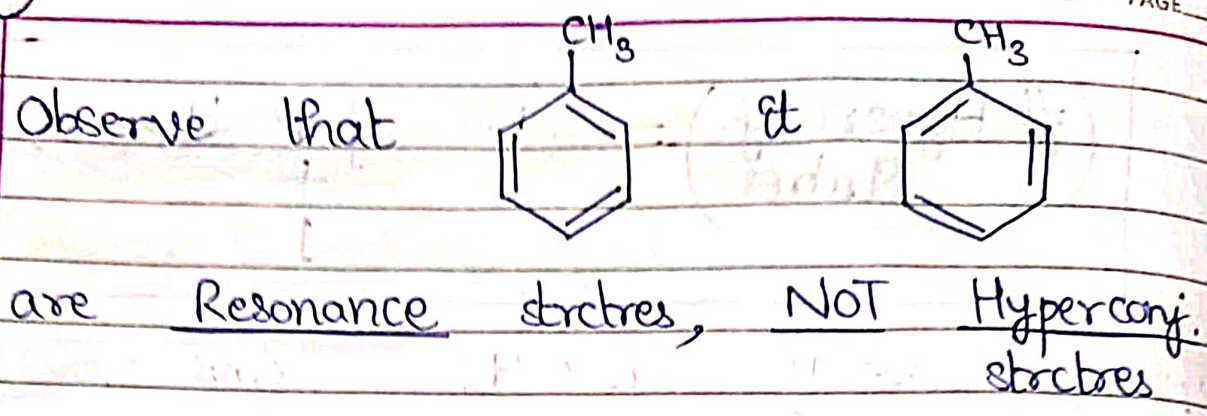 PAGE
CH3 CH3
Observe that &
are Resonance strctres, NOT Hyperconj.
strctres